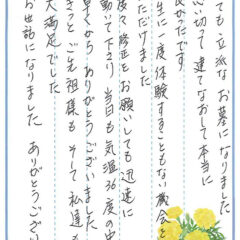 ても立派なお墓になりました
心切って建てなおして本当に
良かったです。
生に一度体験することもない機会を
ただけました
度々修正をお願いしても迅速に
動いて下さり 当日も気温36度の中
早くから ありがとうございました
きっとご先祖様も そして私達も
大満足でした
お世話になりました ありがとうござい